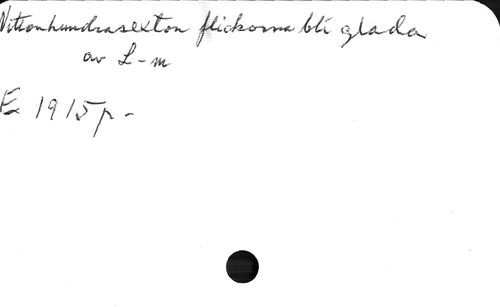 Nittonhundrasexton flickorna bli glada
av L-m
E 1915 p -